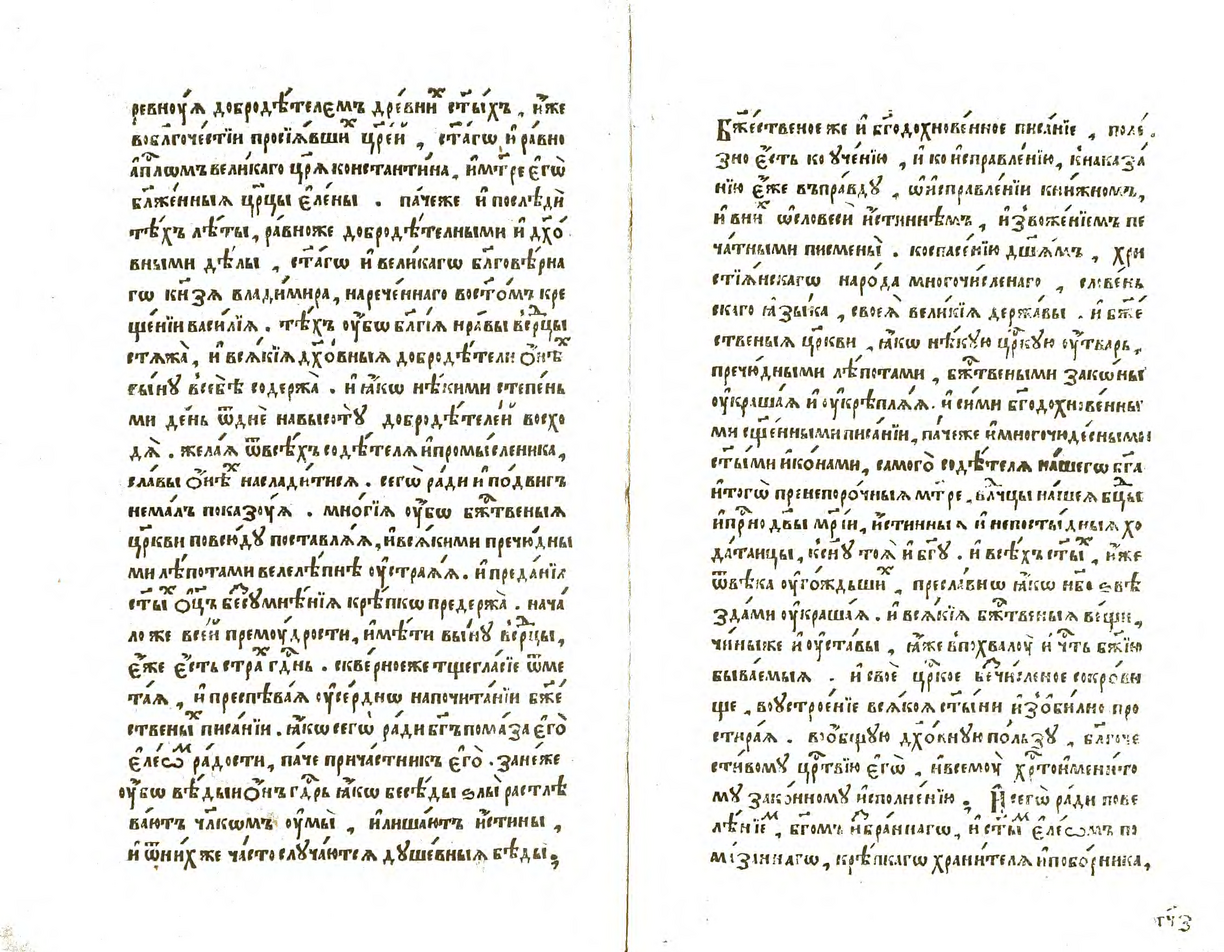 ревнꙋ́ѧ добродѣ́телємъ дре́вниⷯ ст҃ы́хъ , и҆́же
во бл҃гоче́стїи просїѧ́вшиⷯ цр҃е́й , ст҃а́гѡ и҆ ра́вно
а҆пⷭ҇лѡмъ вели́каго цр҃ѧ̀ константи́на , и҆ мт҃ре є҆гѡ̀
бл҃же́нныѧ цр҃цы є҆ле́ны . па́чеже и҆ послѣ́ди
тѣ́хъ лѣ́ты , ра́вноже добродѣ́телными и҆ дх҃о́
вными дѣ́лы , ст҃а́гѡ и҆ вели́кагѡ бл҃говѣ́рна
гѡ кн҃зѧ влади́мира , нарече́ннаго во ст҃о́мъ кре
ще́нїи васи́лїѧ . тѣ́хъ ᲂу҆́бѡ бл҃гі́ѧ нра́вы в се́рⷣцы
стѧжа̀ , и҆ всѧ́кїѧ дх҃о́вныѧ добродѣ́тели ѻ҆́нѣⷯ
вы́нꙋ в себѣ̀ содержа̀ . и҆ ꙗ҆́кѡ нѣ́кими степе́нь
ми де́нь ѿ днѐ на высотꙋ̀ добродѣ́телей восхо
дѧ̀ . жела́ѧ ѿ всѣ́хъ содѣ́телѧ и҆ промы́сленика ,
сла́вы ѻ҆́нѣⷯ наслади́тисѧ . сегѡ̀ ра́ди и҆ по́двигъ
нема́лъ показꙋ́ѧ . мнѡ́гїѧ ᲂу҆́бѡ бжⷭ҇твеныѧ
цр҃кви повсю́дꙋ поставлѧ́ѧ , и҆ всѧ́кими пречю́дны
ми лѣ́потами велелѣ́пнѣ ᲂу҆страѧ́ѧ . и҆ преда́нїѧ
ст҃ыⷯ ѻ҆ц҃ъ без сꙋмнѣ́нїѧ крѣ́пкѡ предержа̀ . нача́
ло же все́й премꙋ́дрости , и҆мѣ́ти вы́нꙋ в се́рⷣцы ,
є҆́же є҆́сть стра́ⷯ гдⷭ҇нь . скве́рное же тщегла́сїе ѿме
та́ѧ , и҆ преспѣва́ѧ ᲂу҆се́рднѡ на почита́нїи бж҃е́
ственыⷯ писа́нїи . ꙗ҆́кѡ сегѡ̀ ра́ди бг҃ъ пома́за є҆го̀
є҆ле́ѡⷨ ра́дости , па́че прича́стникъ є҆го̀ . зане́же
ᲂу҆́бѡ вѣ́дый ѻ҆́нъ гдⷭ҇рь ꙗ҆́кѡ бесѣ́ды ѕлы̀ растлѣ
ва́ютъ чл҃кѡмъ ᲂу҆мы̀ , и҆ лиша́ютъ и҆́стины ,
и҆ ѿ ни́х же ча́сто слꙋча́ютсѧ дꙋше́вныѧ бѣ́ды ;
Бж҃е́ственое же и҆ бг҃одохнове́нное писа́нїе , поле́
зно є҆́сть ко ᲂу҆че́нїю , и҆ ко и҆справле́нїю , к наказа́
нїю є҆́же въ пра́вдꙋ , ѡ҆ и҆справле́нїи кни́жномъ ,
и҆ в ни́ⷯ ѡ҆ словесѝ и҆́стиннѣмъ , и҆зⸯѡбраже́нїемъ пе
ча́тными писмены̀ . ко спасе́нїю дш҃а́мъ , хри
стїѧ́нскагѡ наро́да многочи́сленаго , слове́нь
скаго ꙗ҆зы́ка , своеѧ̀ вели́кїѧ держа́вы . и҆ бж҃е́
ственыѧ цр҃кви , ꙗ҆́кѡ нѣ́кꙋю цр҃кꙋю ᲂу҆́тварь ,
пречю́дными лѣ́потами , бжⷭ҇твеными зако́ны
ᲂу҆краша́ѧ и҆ ᲂу҆крѣплѧ́ѧ . и҆ си́ми бг҃одохнове́нны
ми сщ҃е́нными писа́нїи , па́чеже и҆ многочюде́сными
ст҃ы́ми и҆ко́нами , самого̀ содѣ́телѧ на́шегѡ бг҃а
и҆ тогѡ̀ пренепоро́чныѧ мт҃ре , влⷣчцы на́шеѧ бцⷣы
и҆ прⷭ҇но дв҃ы мр҃і́и , и҆́стинныѧ и҆ непосты́дныѧ хо
да́таицы , к сн҃ꙋ тоѧ̀ и҆ бг҃ꙋ . и҆ всѣ́хъ ст҃ыⷯ , и҆́же
ѿ вѣ́ка ᲂу҆го́ждьшиⷯ , пресла́внѡ ꙗ҆́кѡ нб҃о ѕвѣ
зда́ми ᲂу҆краша́ѧ . и҆ всѧ́кїѧ бжⷭ҇твеныѧ ве́щи ,
чи́ны же и҆ ᲂу҆ста́вы , ꙗ҆́же в похвалꙋ̀ и҆ чⷭ҇ть бж҃їю
быва́емыѧ . и҆ своѐ цр҃кое бесчи́сленое сокро́ви
ще , во ᲂу҆строе́ніе всѧ́коѧ ст҃ы́ни и҆зоби́лно про
стира́ѧ . в о҆́бщꙋю дх҃о́внꙋю по́льзꙋ , бл҃гоче
сти́вомꙋ црⷭ҇твїю є҆гѡ̀ , и҆ всемꙋ̀ хрⷭ҇тоимени́то
мꙋ зако́нному и҆сполне́нїю ; И҆ сегѡ̀ ра́ди пове
лѣ́нїеⷨ , бг҃омъ и҆збра́ннагѡ , и҆ ст҃ыⷨ є҆ле́ѡмъ по
ма́заннагѡ , крѣ́пкагѡ храни́телѧ и҆ побо́рника ,